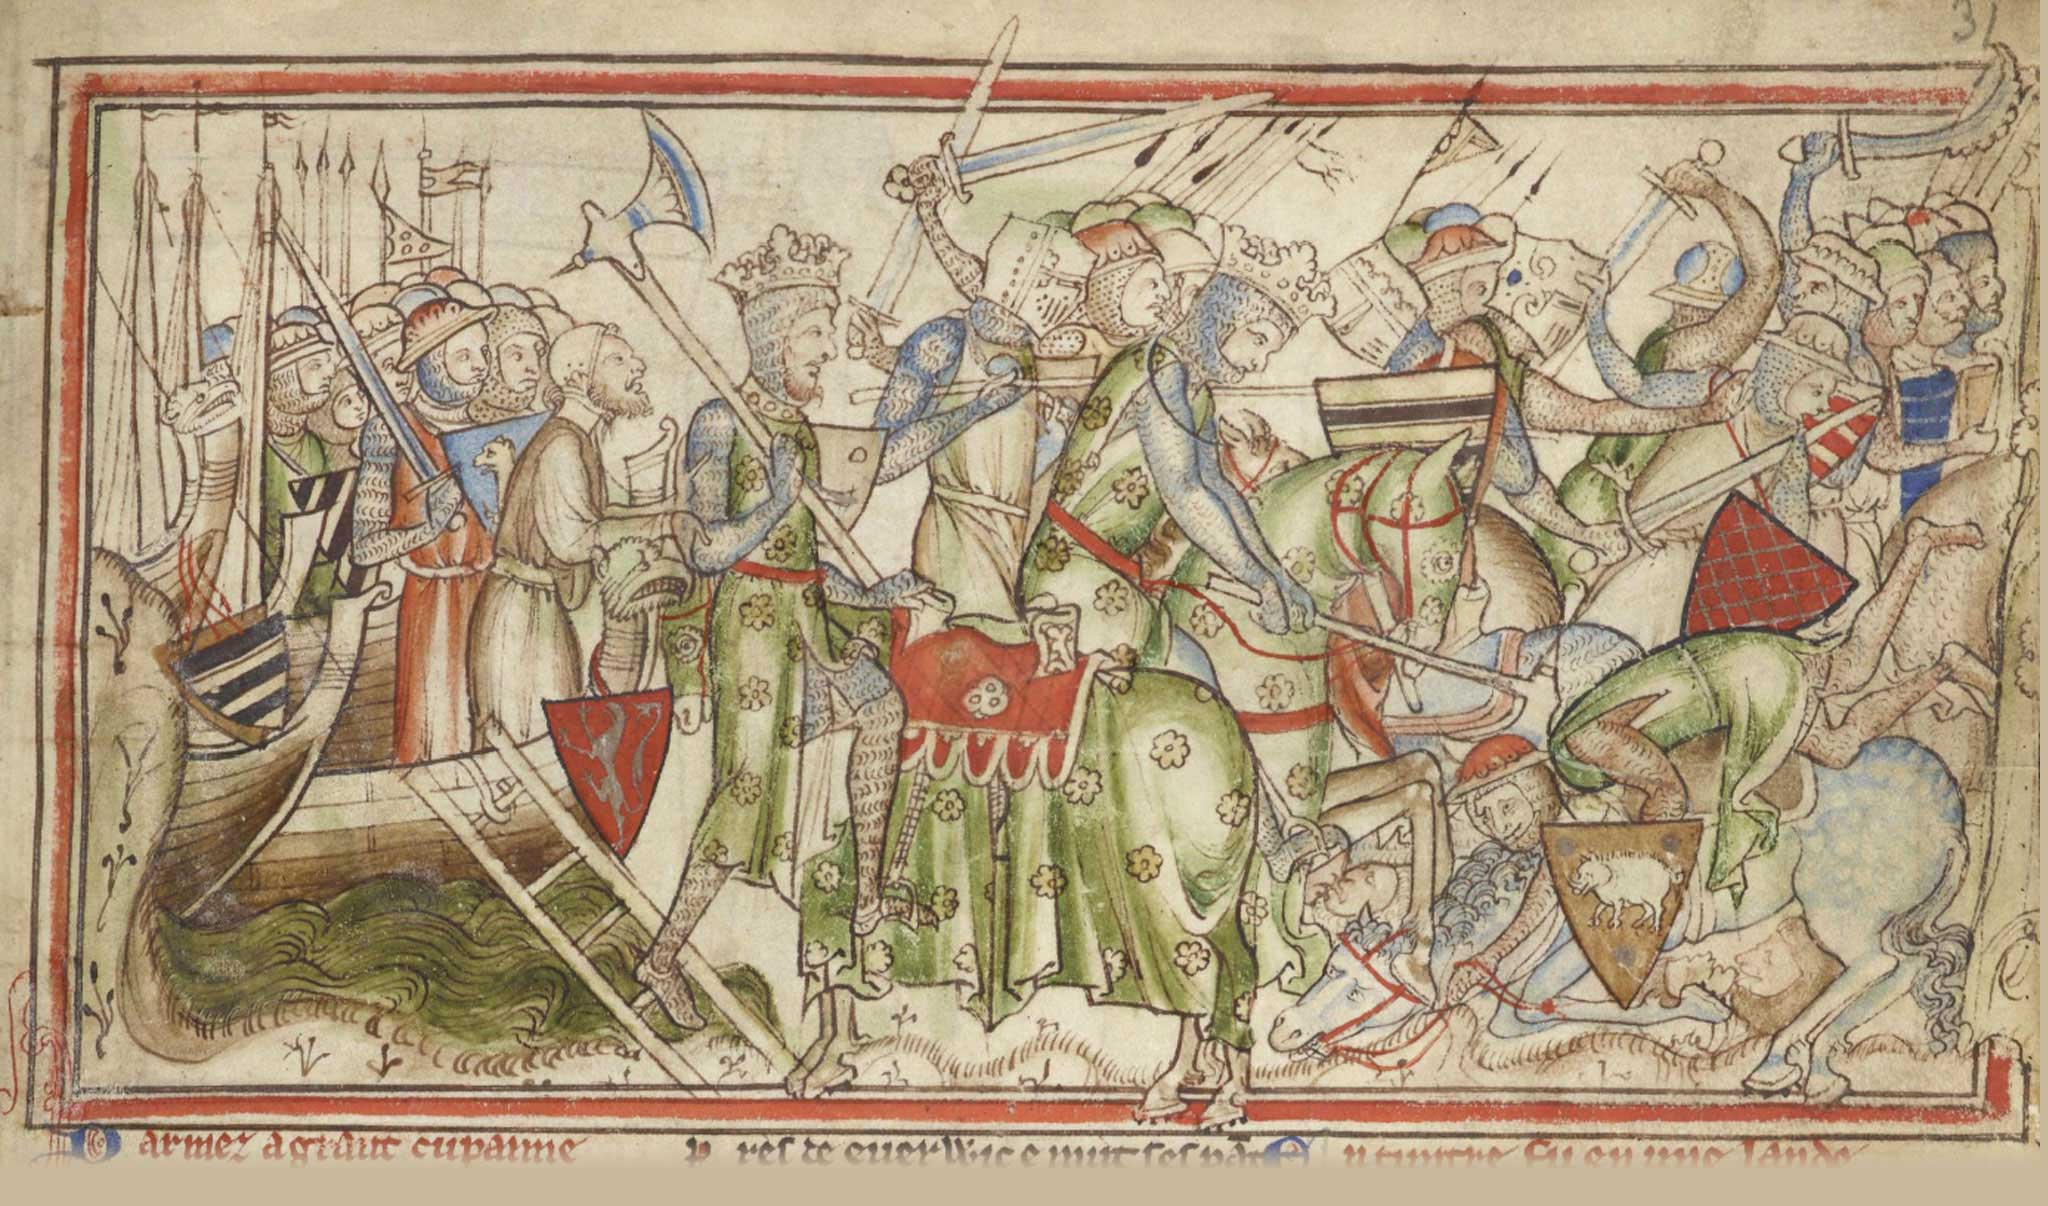 31
armez a grant cupainie
Pres de euerwic e mut ses
n tuntre fu en une lande